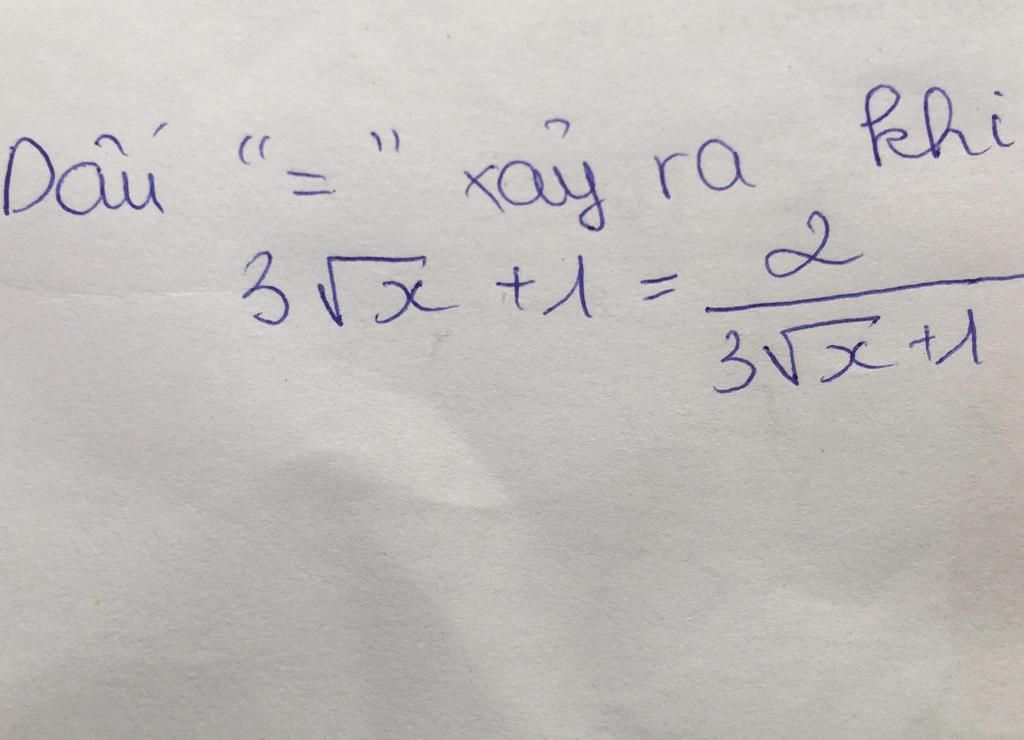 Dấu "=" xảy ra khi
3√x + 1 = 2/(3√x + 1)